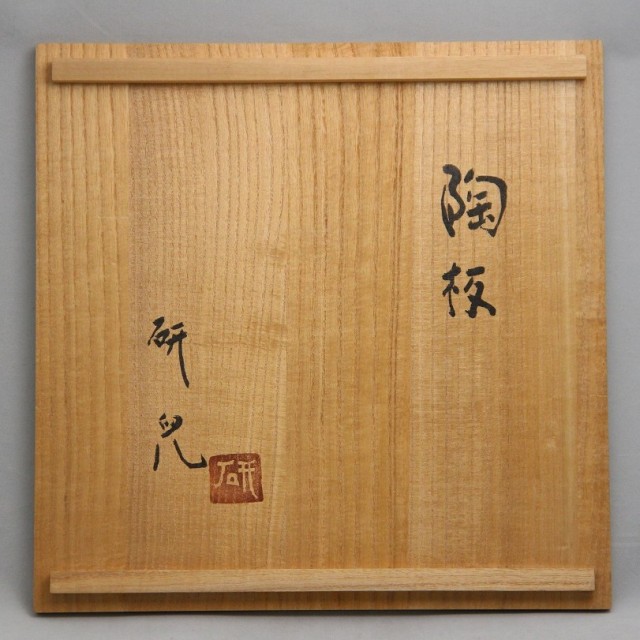 陶板
研児
研